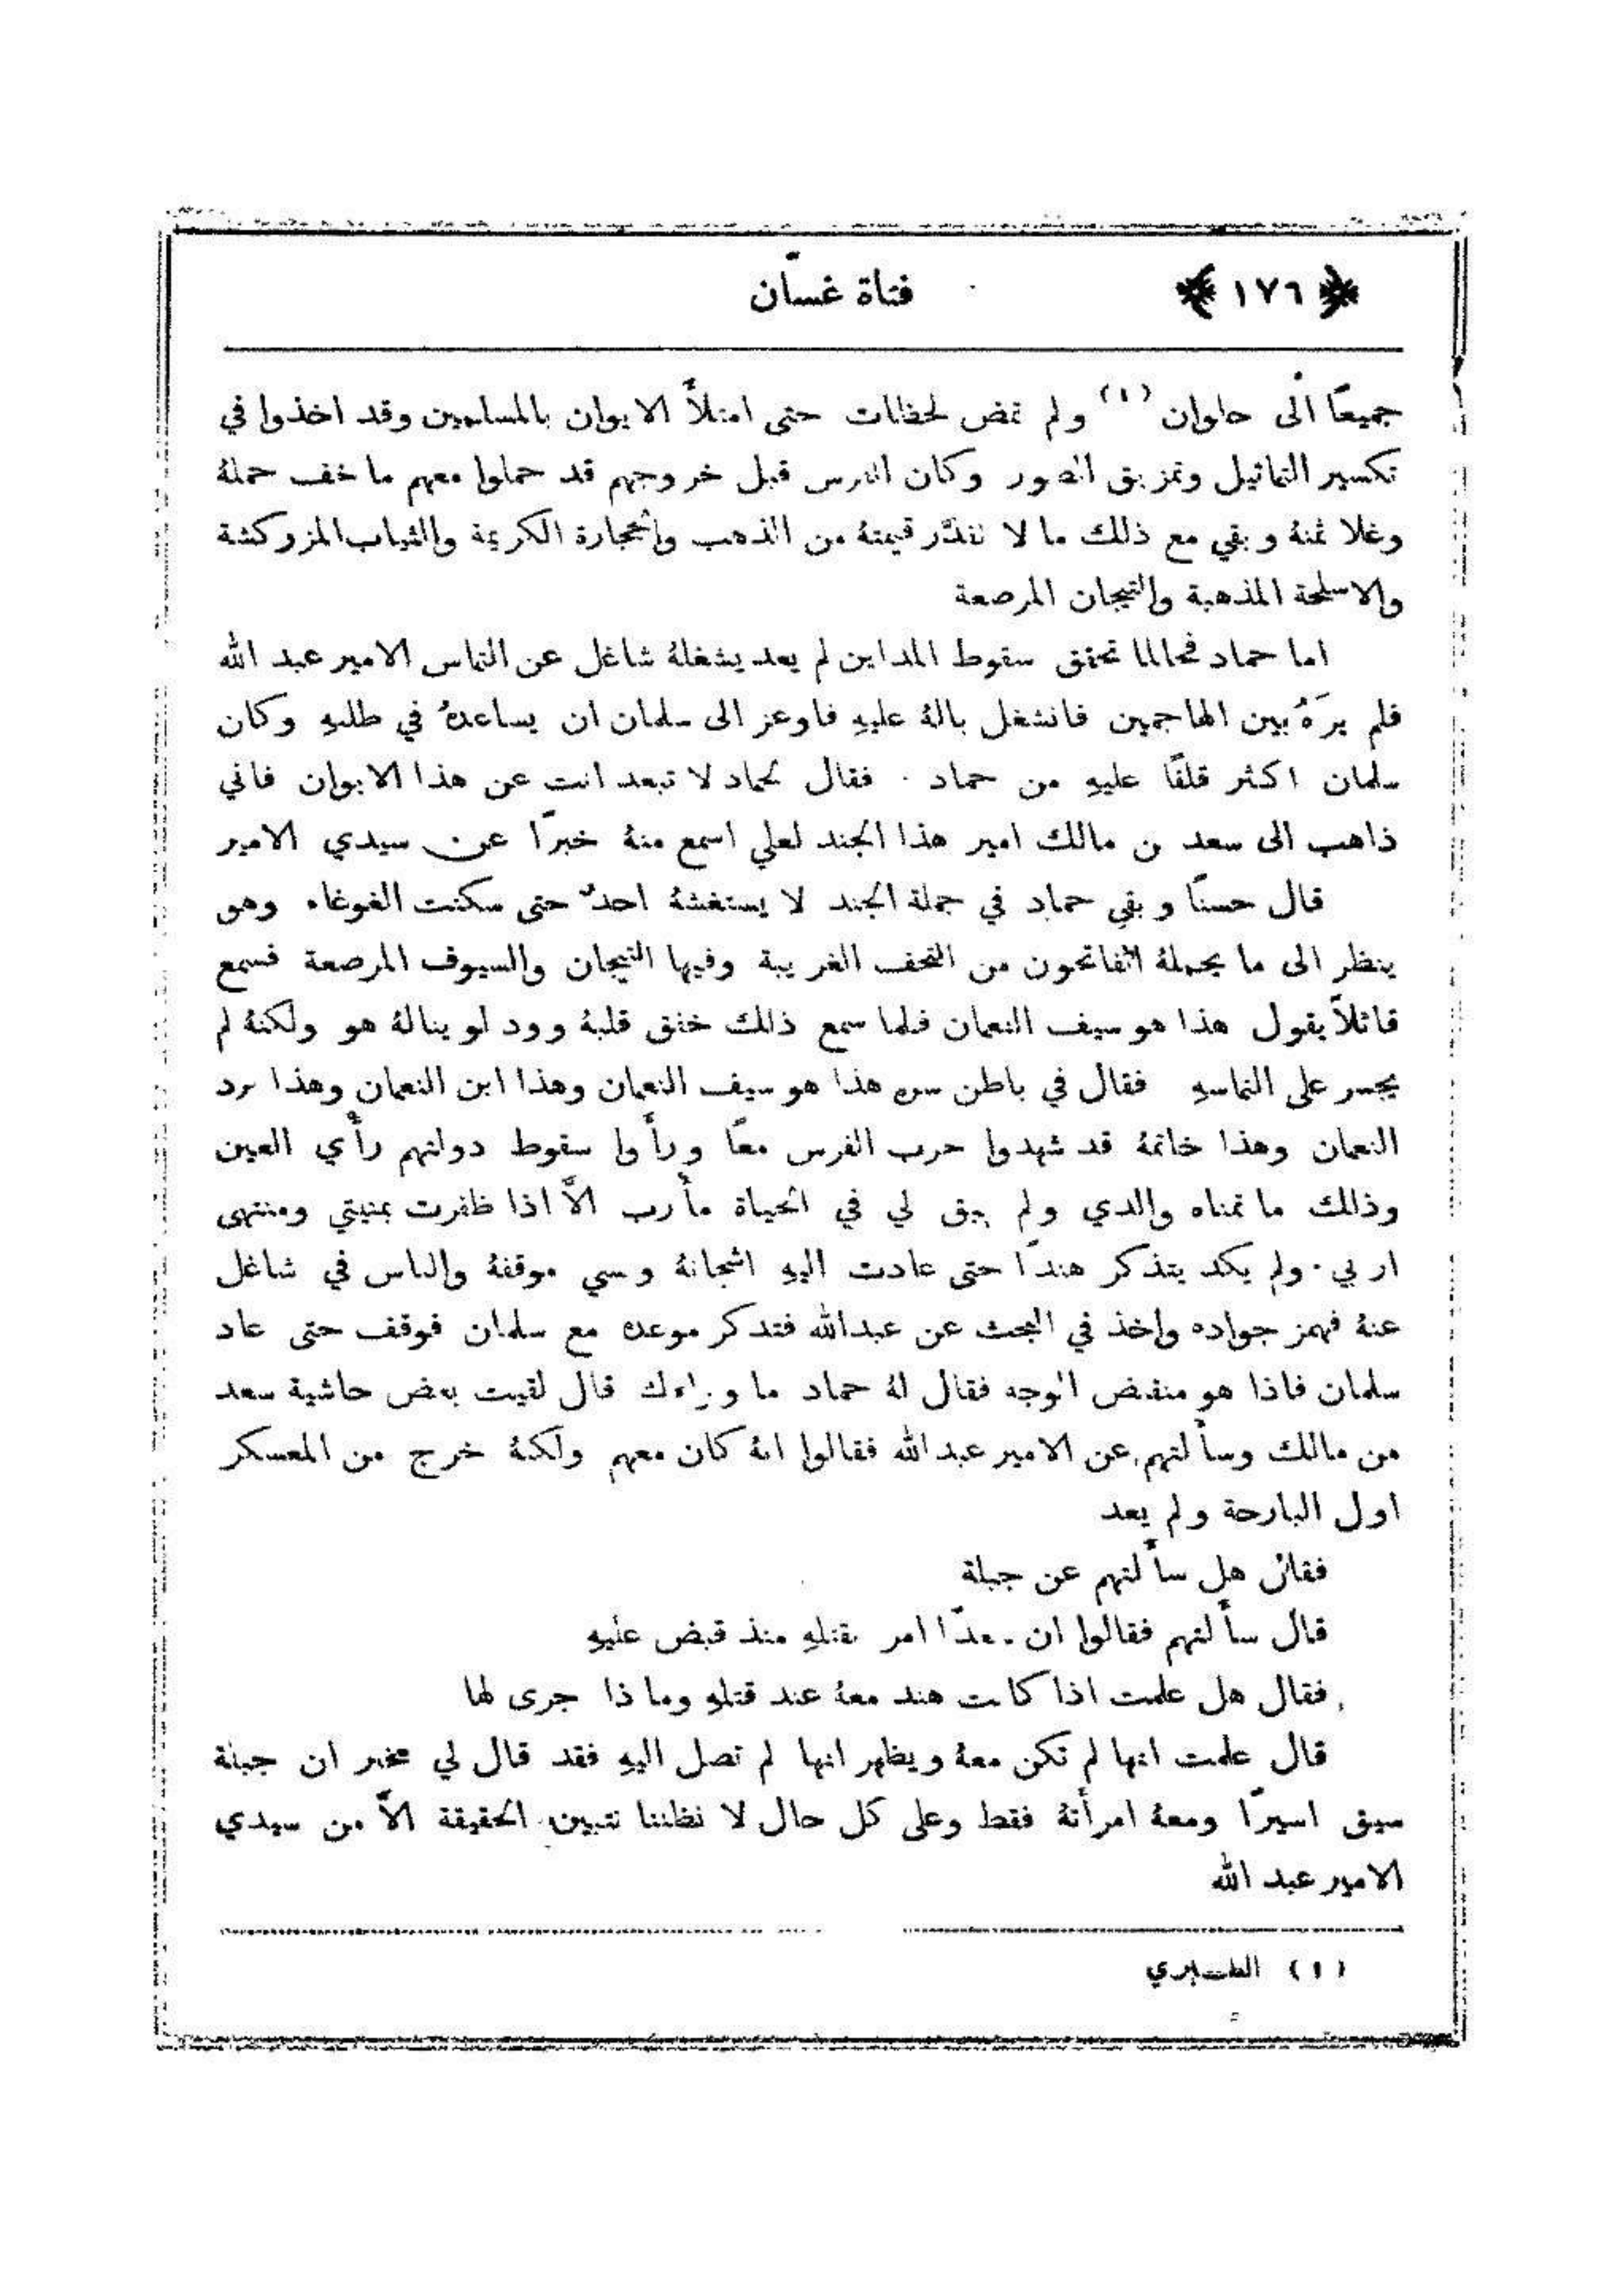 ﴿ ١٧٦ ﴾ فتاة غسّان
جميعًا الى حلوان (١) ولم تمض لحظات حتى امتلأ الايوان بالمسلمين وقد اخذوا في
تكسير التماثيل وتمزيق الصور وكان الفرس قبل خروجهم قد حملوا معهم ما خف حملهُ
وغلا ثمنهُ وبقي مع ذلك ما لا تقدَّر قيمتهُ من الذهب والحجارة الكريمة والثياب المزركشة
والاسلحة المذهبة والتيجان المرصعة
اما حماد فحالما تحقق سقوط المداين لم يعد يشغلهُ شاغل عن التماس الامير عبد الله
فلم يرَهُ بين الهاجمين فانشغل بالهُ عليهِ فاوعز الى سلمان ان يساعدهُ في طلبهِ وكان
سلمان اكثر قلقًا عليهِ من حماد . فقال لحماد لا تبعد انت عن هذا الايوان فاني
ذاهب الى سعد بن مالك امير هذا الجند لعلي اسمع منهُ خبرًا عن سيدي الامير
قال حسنًا وبقي حماد في جملة الجند لا يستغشهُ احدٌ حتى سكنت الغوغاء وهو
ينظر الى ما يحملهُ الفاتحون من التحف الغريبة وفيها التيجان والسيوف المرصعة فسمع
قائلاً يقول هذا هو سيف النعمان فلما سمع ذلك خفق قلبهُ وود لو ينالهُ هو ولكنهُ لم
يجسر على التماسهِ فقال في باطن سره هذا هو سيف النعمان وهذا ابن النعمان وهذا برد
النعمان وهذا خاتمهُ قد شهدوا حرب الفرس معًا ورأوا سقوط دولتهم رأي العين
وذلك ما تمناه والدي ولم يبق لي في الحياة مأرب الاَّ اذا ظفرت بمنيتي ومنتهى
اربي . ولم يكد يتذكر هندًا حتى عادت اليهِ اشجانهُ ونسي موقفهُ والناس في شاغل
عنهُ فهمز جواده واخذ في البحث عن عبدالله فتذكر موعده مع سلمان فوقف حتى عاد
سلمان فاذا هو منقبض الوجه فقال لهُ حماد ما وراءك قال لقيت بعض حاشية سعد
بن مالك وسألتهم عن الامير عبد الله فقالوا انهُ كان معهم ولكنهُ خرج من المعسكر
اول البارحة ولم يعد
فقال هل سألتهم عن جبلة
قال سألتهم فقالوا ان سعدًا امر بقتلهِ منذ قبض عليهِ
فقال هل علمت اذا كانت هند معهُ عند قتلهِ وماذا جرى لها
قال علمت انها لم تكن معهُ ويظهر انها لم تصل اليهِ فقد قال لي مخبر ان جبلة
سيق اسيرًا ومعهُ امرأتهُ فقط وعلى كل حال لا نظننا نتبين الحقيقة الاَّ من سيدي
الامير عبد الله
(١) الطبري